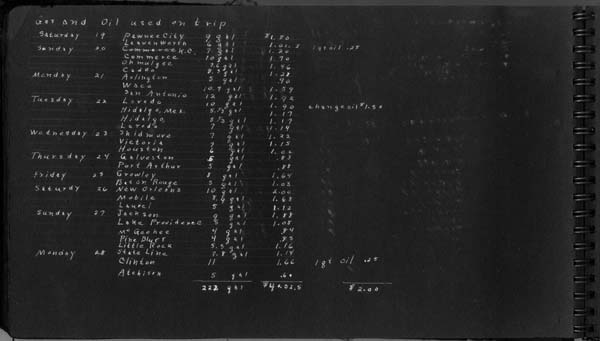 Gas and Oil used on trip
Saturday 19 Pawnee City 9 gal $1.50
Leavenworth 6 gal 1.01.5 1 qt oil .25
Sunday 20 Commerce K.C. 7 gal 1.20
Commerce 10 gal 1.70
Okmulgee gal
Caddo gal 1.28
Monday 21 Arlington 5 gal .90
Waco 10.9 gal
San Antonio 12 gal
Tuesday 22 Laredo 10 gal 1.90 change oil $1.50
Hidalgo, Mex. gal 1.17
Hidalgo gal 1.17
Laredo 7 gal 1.19
Wednesday 23 Skidmore 7 gal
Victoria 7 gal 1.15
Houston 6 gal
Thursday 24 Galveston gal .83
Port Arthur 5 gal .88
Friday 25 Crowley 8 gal 1.64
Baton Rouge 5 gal 1.03
Saturday 26 New Orleans 10 gal 2.00
Mobile gal 1.68
Laurel gal
Sunday 27 Jackson 9 gal 1.88
Lake Providence 5 gal 1.08
McGeehee 4 gal .84
Pine Bluff 4 gal .83
Little Rock 5.5 gal 1.16
Monday 28 State Line gal 1.14
Clinton 11 1.66 1 qt oil .25
Atchison 5 gal .60
222 gal $2.00